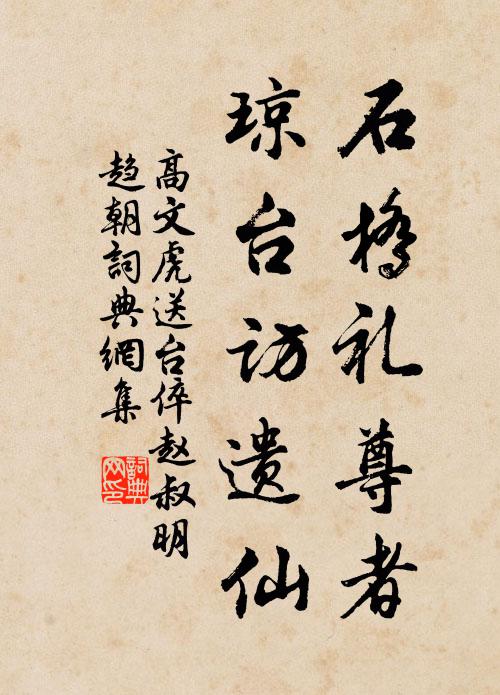 石桥礼尊者
琼台访遗仙
高文虎送台倅赵叔明
趋朝詞典網集
詞典
网印